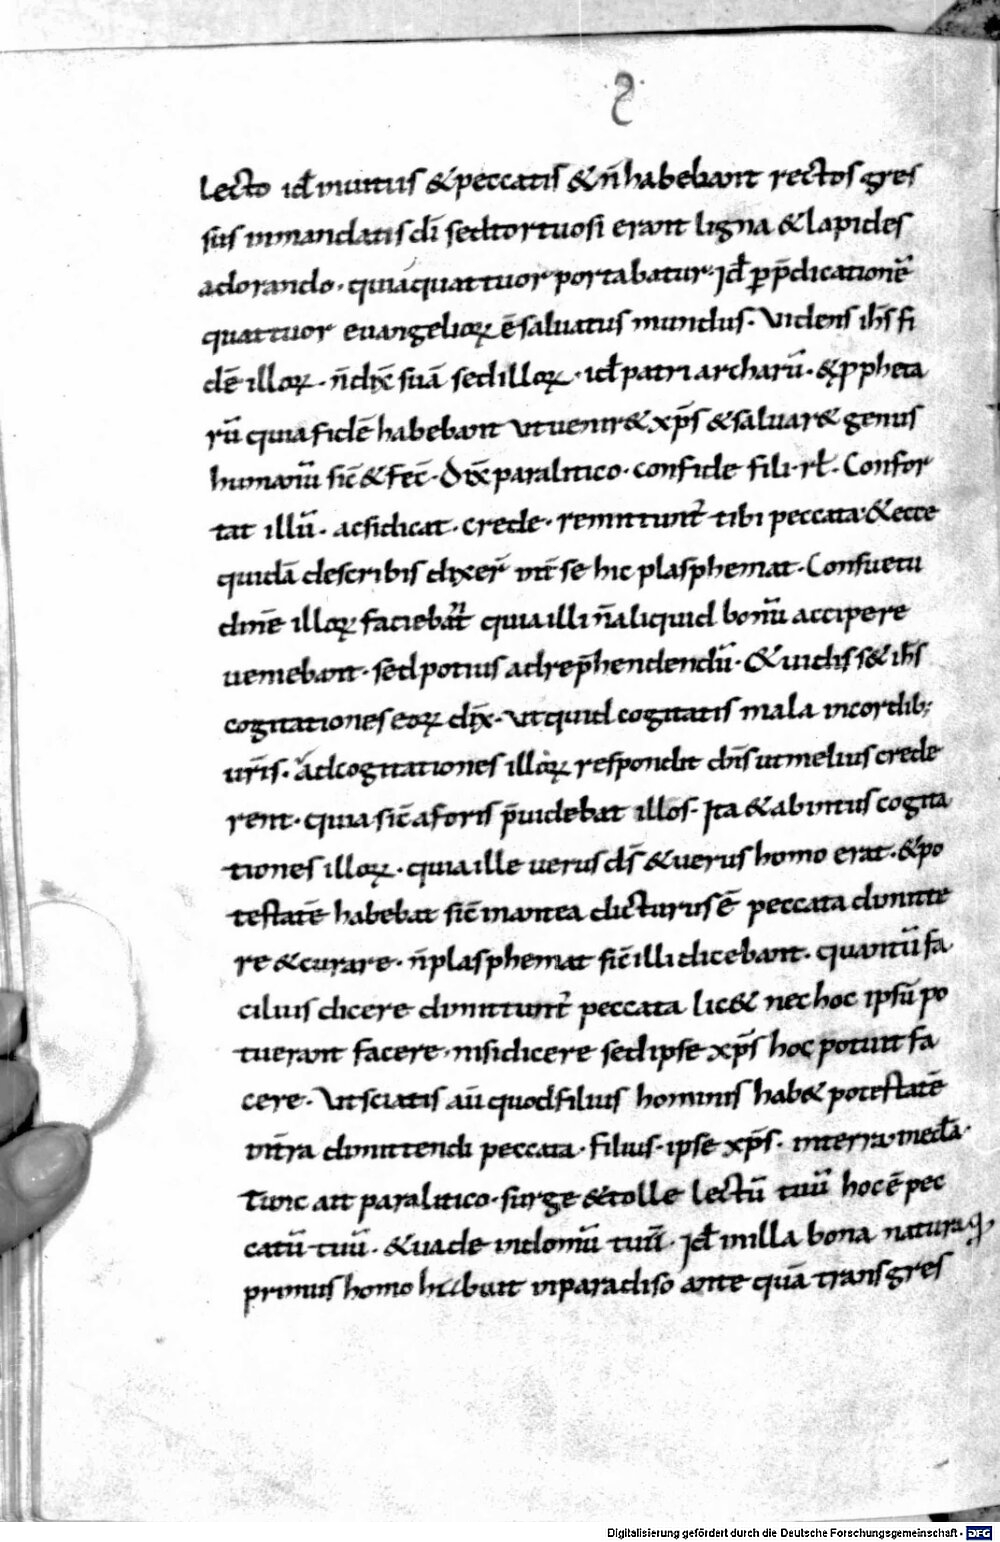 ·S·
lecto id÷ in uitiis & peccatis & n̄ habebant rectos gres
sus in mandatis dī sed tortuosi erant ligna & lapides
adorando · quia a quattuor portabatur · Id÷ ꝑ p̄dicationē
quattuor euangelioꝝ ē saluatus mundus · Videns ih̄s fi
dē illoꝝ · n̄ dix̄ suā sed illoꝝ · id÷ patriarcharū · & ꝓpheta
rū quia fidē habebant ut uenir& xp̄s & saluar& genus
humanū sic̄ & fec̄ · Dix̄ paralitico · confide fili · rł · Confor
tat illū · ac si dicat · crede · remittunt̄ tibi peccata · & ecce
quidā de scribis dixer̄ int̄ se hic plasphemat · Consuetu
dinē illoꝝ faciebat̄ quia illi n̄ aliquid bonū accipere
ueniebant · sed potius ad rep̄hendendū · & uidiss& ih̄s
cogitationes eoꝝ dix̄ · ut quid cogitatis mala in cordib;
ur̄is · Ad cogitationes illoꝝ respondit dn̄s ut melius crede
rent · quia sic̄ a foris p̄uidebat illos · Ita & ab intus cogita
tiones illoꝝ · quia ille uerus ds̄ & uerus homo erat · & po
testatē habebat sic̄ in antea dicturus ē peccata dimitte
re & curare · n̄ plasphemat sic̄ illi dicebant · quantū fa
cilius dicere dimittunt̄ peccata lic& nec hoc ipsū po
tuerant facere · nisi dicere sed ipse xp̄s hoc potuit fa
cere · Ut sciatis aū quod filius hominis hab& potestatē
in t̄ra dimittendi peccata · filius · ipse xp̄s · in terra · in ·
Tunc ait paralitico · surge & tolle lectū tuū hoc ē pec
catū tuū · & uade in domū tuū · Id÷ in illa bona natura q̣,
primus homo habuit in paradiso ante quā transgres
Digitalisierung gefördert durch die Deutsche Forschungsgemeinschaft - DFG